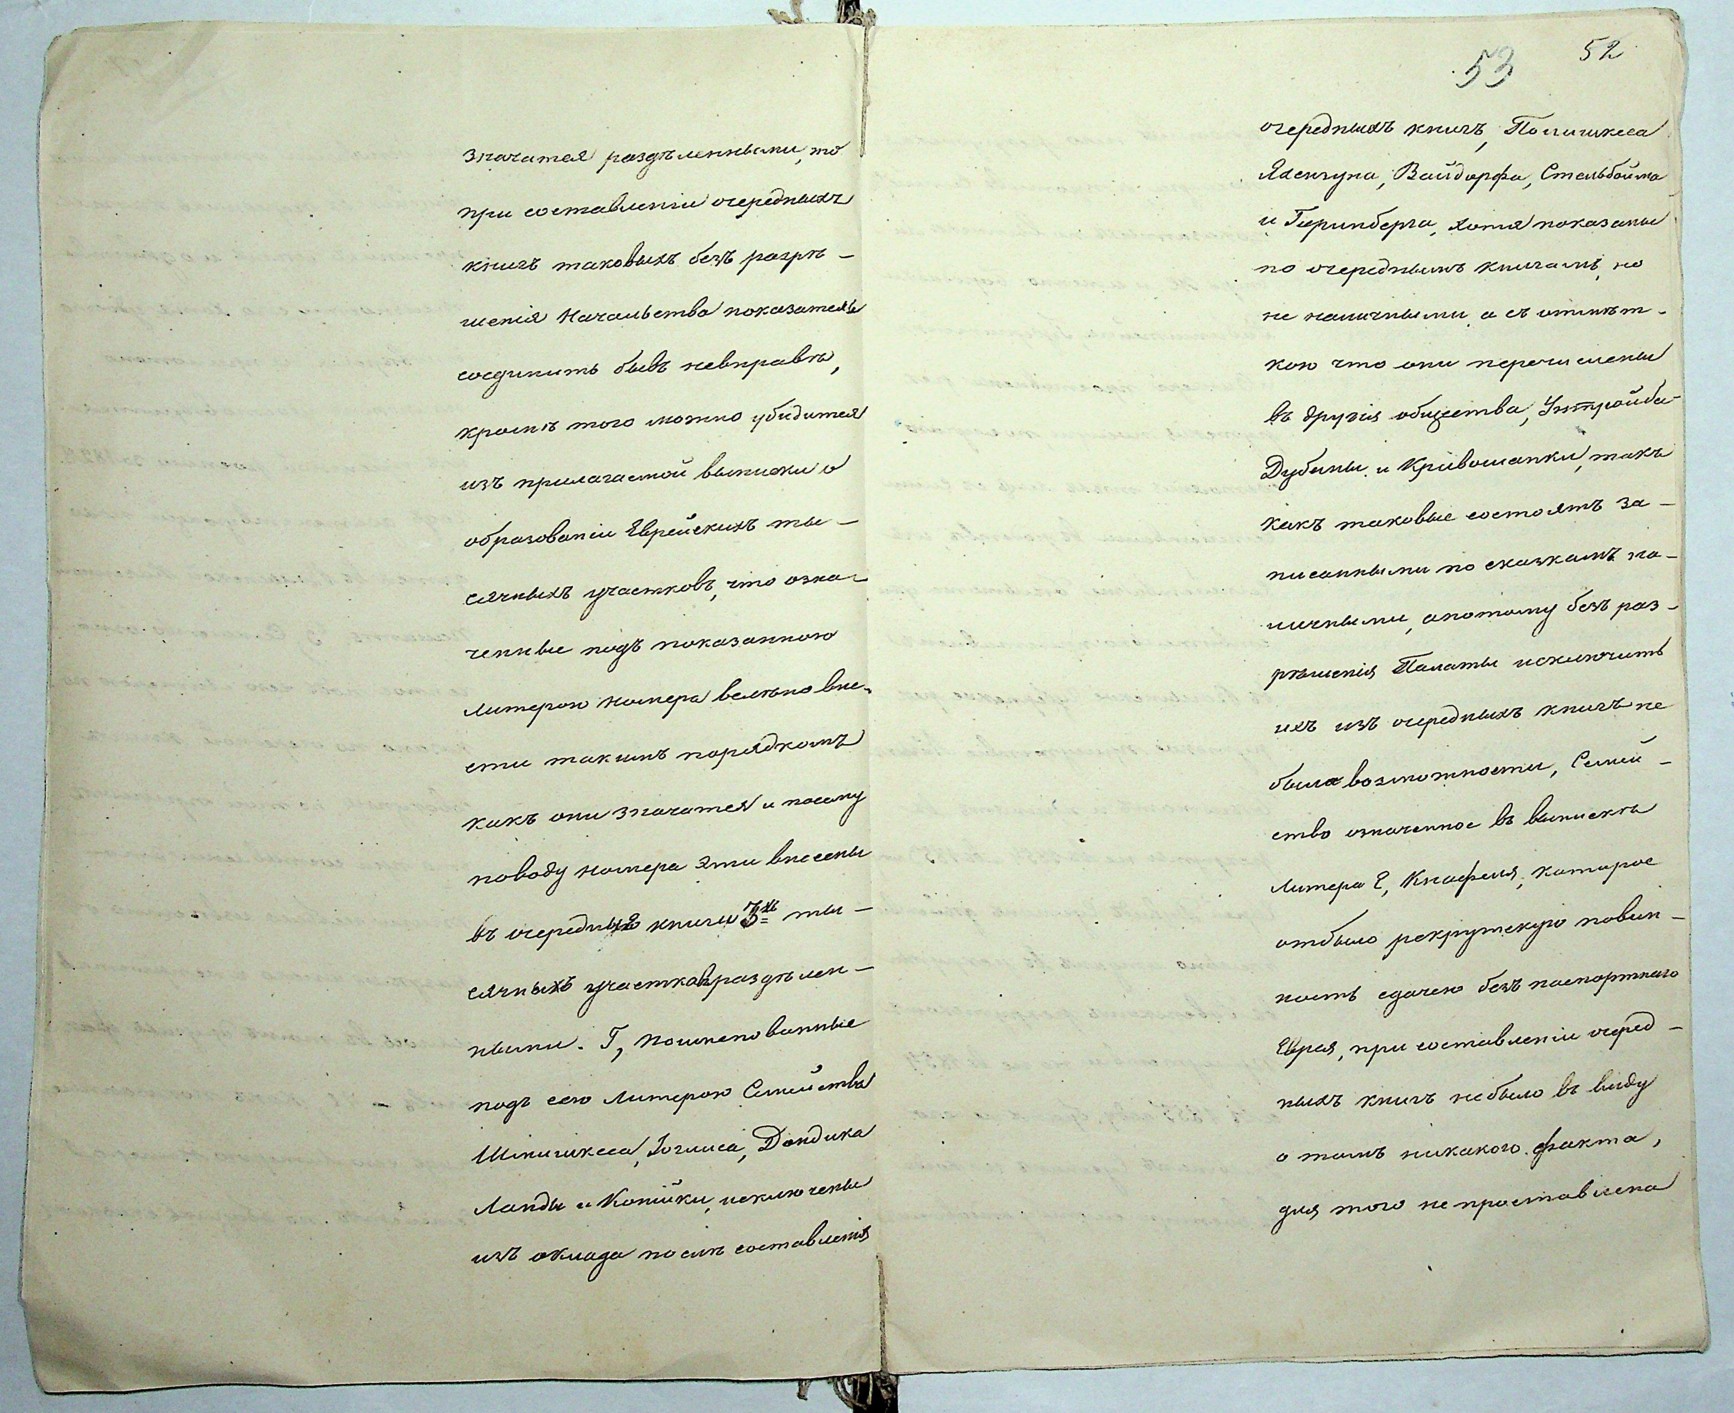 значатся раздѣленными, то
при составленіи очередныхъ
книгъ таковыхъ безъ разрѣ-
шенія Начальства показатель
соединить бывъ невправѣ,
кромѣ того можно убѣдится
изъ прилагаемой выписки о
образованіи Еврейскихъ ты-
сячныхъ участковъ, что озна-
ченные подъ показанною
литерою номера велѣно вне-
сти такимъ порядкомъ
какъ они значатся и посему
поводу номера эти внесены
въ очередныя книги 3хъ ты-
сячныхъ участковъ раздѣлен-
ными. Г, Поименованные
подъ сею Литерою Семейства
Шмигикеса, Гоглиса, Дондика
Ланды и Копійки, исключены
изъ оклада послѣ составленія
53 52
очередныхъ книгъ,
Вайдорфа, Стельбойма
и Гиринберга, хотя показаны
по очереднымъ книгамъ, но
не наличными, а съ отмѣт-
кою что они перечислены
въ другія общества, Унтройба
Дубины и Кривошапки, такъ
какъ таковые состоятъ за-
писанными по сказкамъ на-
личными, апотому безъ раз-
рѣшенія Палаты исключить
ихъ изъ очередныхъ книгъ не
было возможности, Семей-
ство означенное въ выпискѣ
Литера Е, Кнафеля, которое
отбыло рекрутскую повин-
ность сдачею безъ паспортнаго
Еврея, при составленіи очеред-
ныхъ книгъ небыло въ виду
о томъ никакого факта,
для того не проставлена